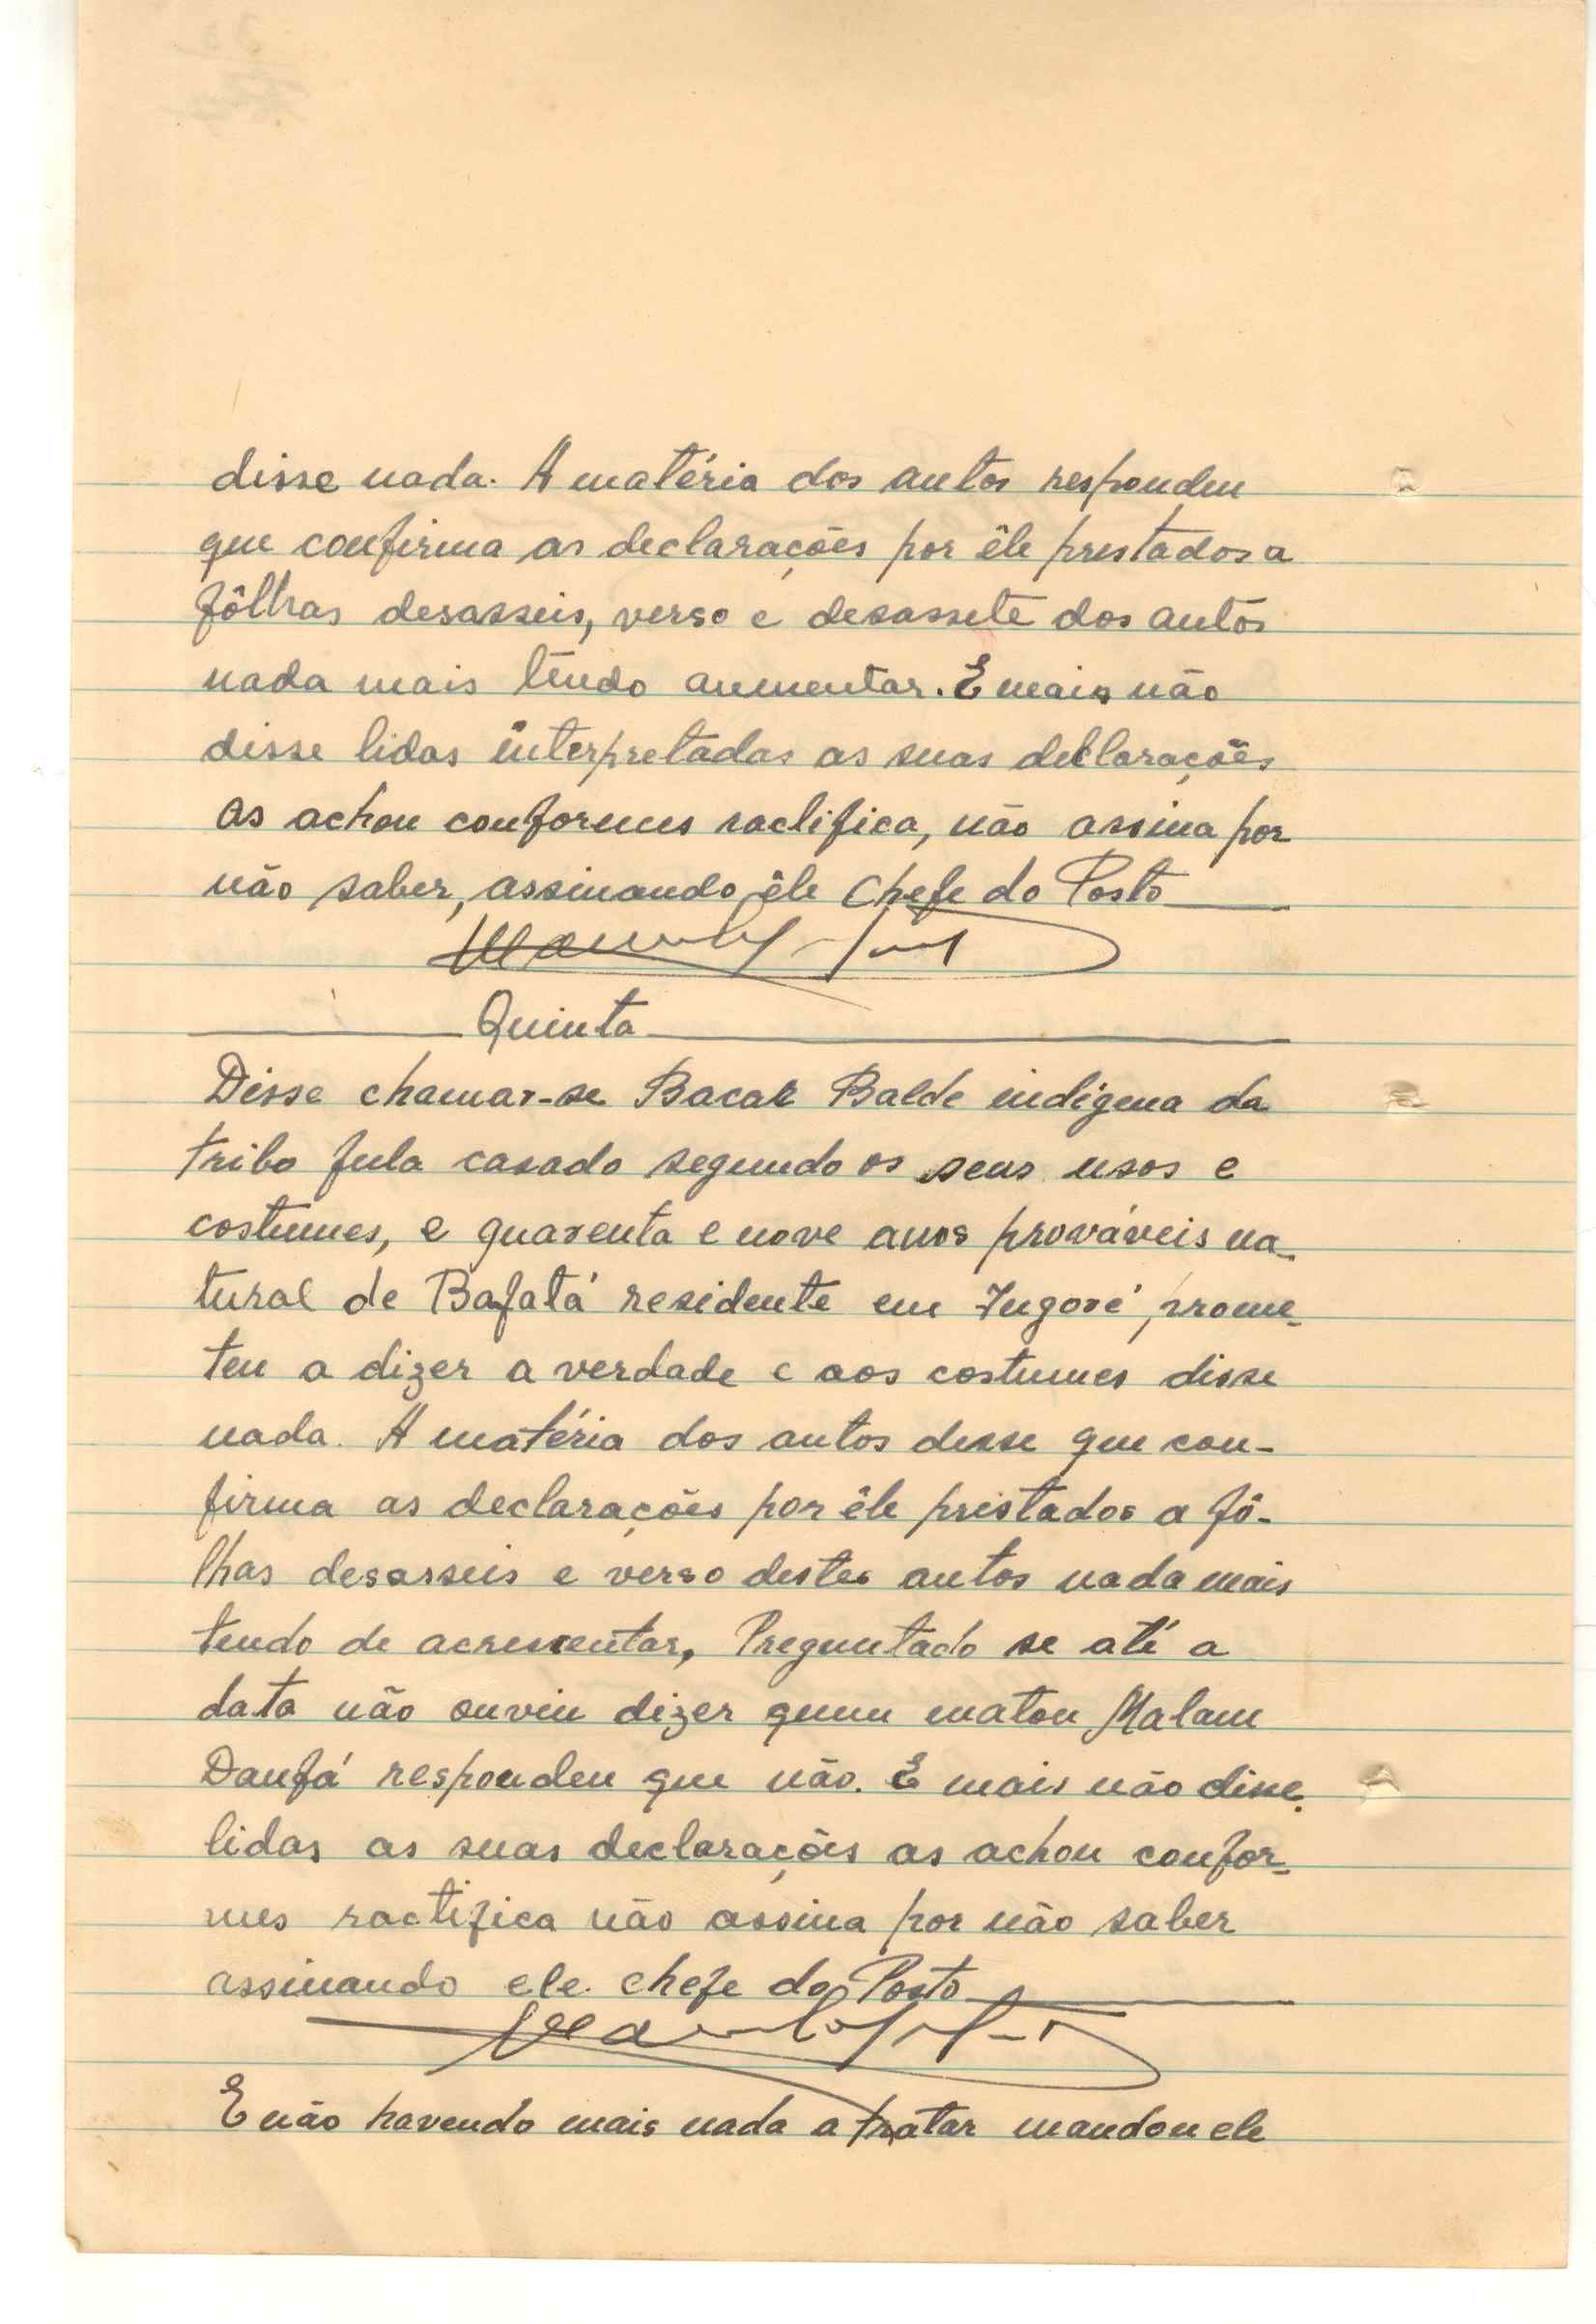 disse nada. A matéria dos autos respondeu
que confirma as declarações por êle prestados a
fôlhas desasseis, verso e desassete dos autos
nada mais tendo aumentar. E mais não
disse lidas interpretadas as suas declarações
as achou conformes ractifica, não assina por
não saber, assinando êle Chefe do Posto
Quinta
Disse chamar-se Bacar Balde indígena da
tribo fula casado segundo os seus usos e
costumes, e quarenta e nove anos prováveis na-
tural de Bafatá residente em Ingoré, prome-
teu a dizer a verdade e aos costumes disse
nada. A matéria dos autos desse que con-
firma as declarações por êle prestados a fô-
lhas desasseis e verso destes autos nada mais
tendo de acrescentar, Preguntado se até a
data não ouviu dizer quem matou Malam
Danfá respondeu que não. E mais não disse.
lidas as suas declarações as achou confor-
mes ractifica não assina por não saber
assinando ele chefe do Posto
E não havendo mais nada a tratar mandou ele